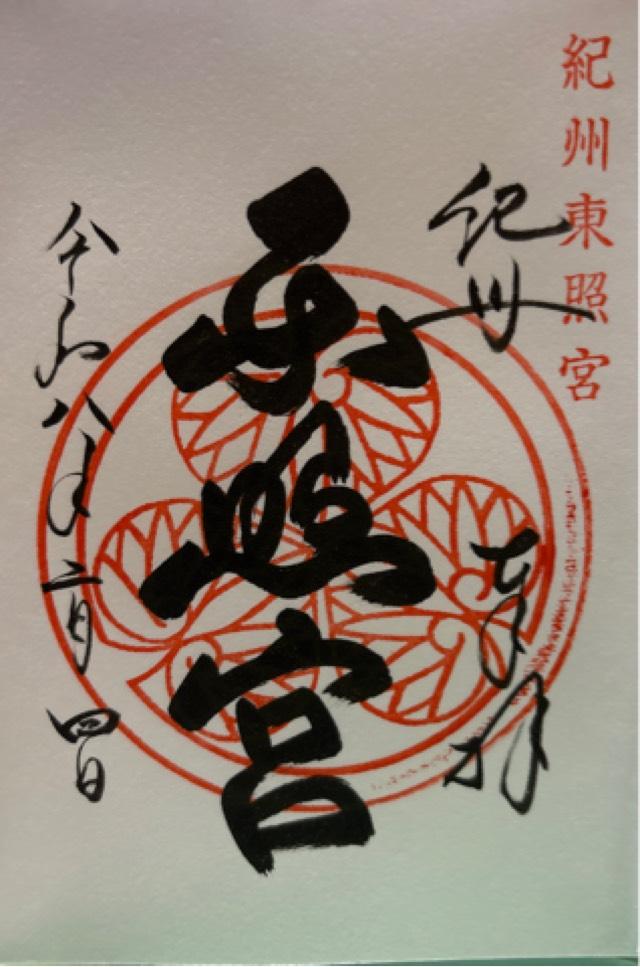 紀州東照宮
紀州
奉拝
東照宮
令和八年二月四日